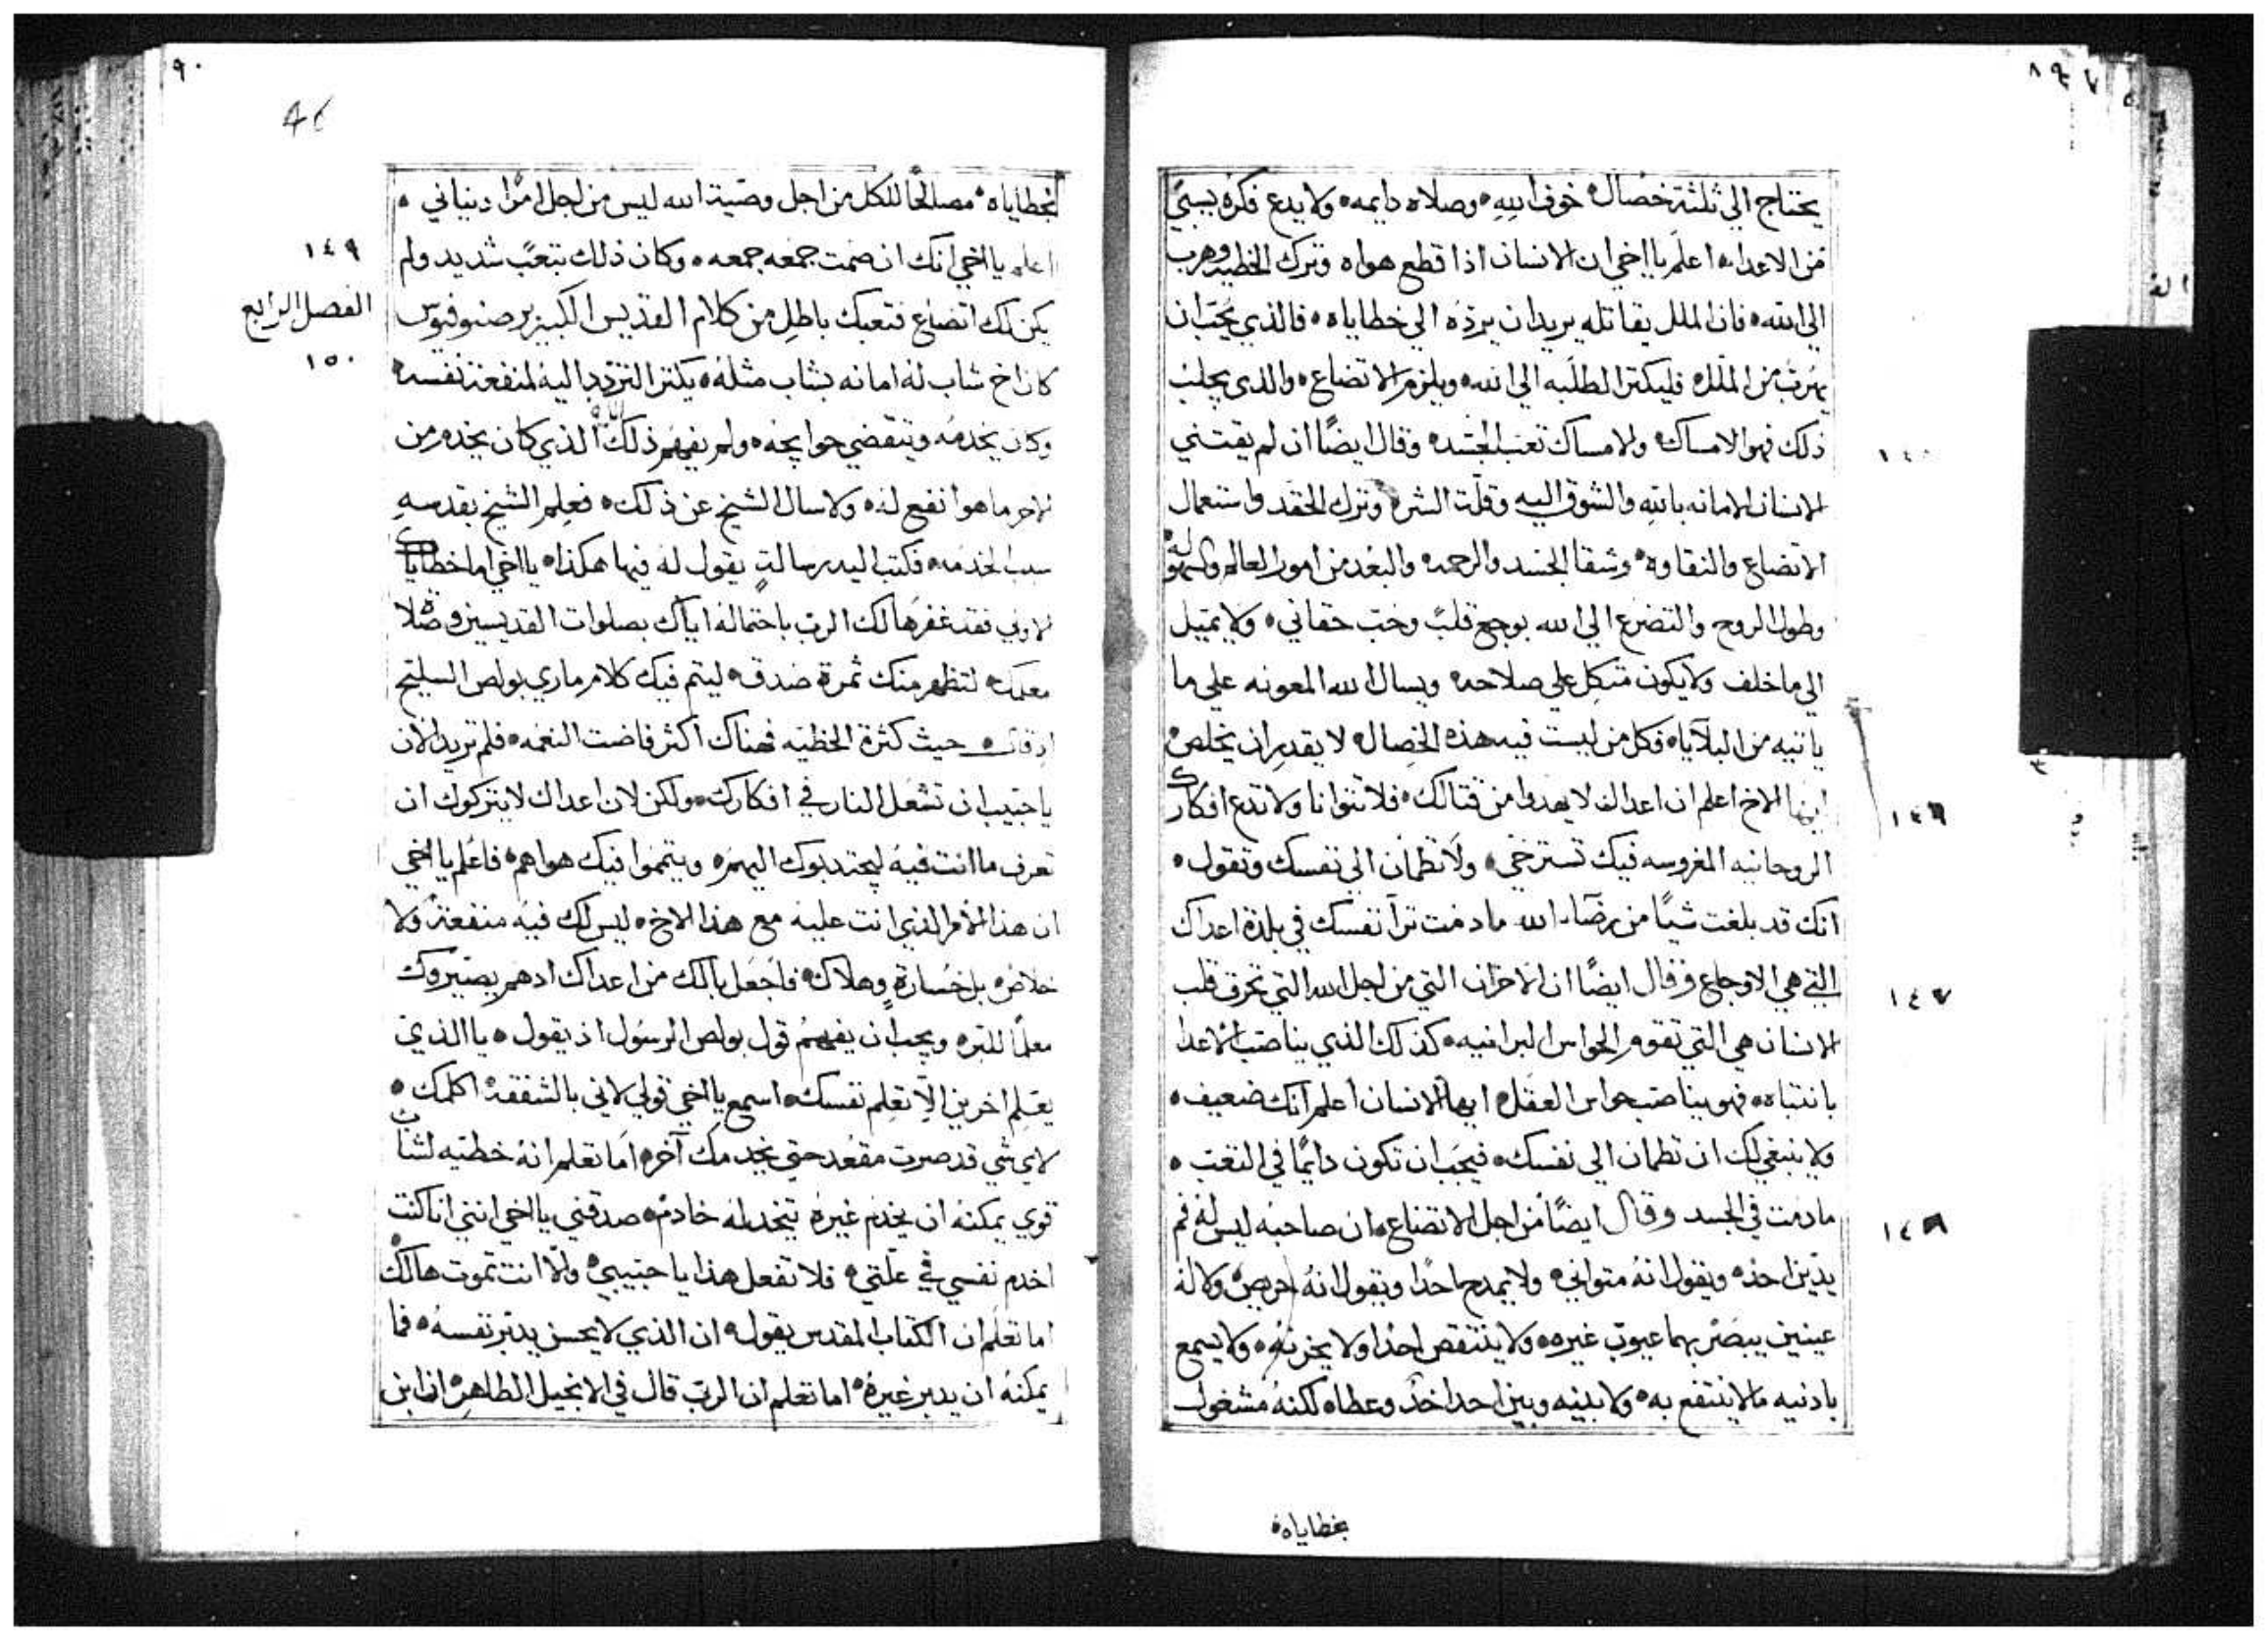 ٨٩
يحتاج الي ثلثة خصال خوف الله وصلاه دايمه ولا يدع فكره يسبي
من الاعداء اعلم يا اخي ان الانسان اذا قطع هواه وترك الخطيه وهرب
الي الله فان الملل يقاتله يريد ان يرده الي خطاياه فالذي يحب ان
يهرب من الملل فليكتر الطلبه الي الله ويلزم الاتضاع والذي يجلب
ذلك فهو الامساك والامساك تعب الجسد وقال ايضًا ان لم يقتني
الانسان الامانه بالله والشوق اليه وقلت الشره وترك الحقد واستعمال
الاتضاع والنقاوه وشقا الجسد والرحمه والبعد من امور العالم
وطول الروح والتضرع الي الله بوجع قلب وحب حقاني ولا يميل
الي ما خلف ولا يكون متكل علي صلاحه ويسال الله المعونه علي ما
ياتيه من البلايا فكل من ليست فيه هذه الخصال لا يقدر ان يخلص
ايها الاخ اعلم ان اعداك لا يهدوا من قتالك فلا تتوانا ولا تدع افكارك
١٤٦
الروحانيه المغروسه فيك تسترخي ولا تطمان الي نفسك وتقول
انك قد بلغت شيًا من رضاء الله ما دمت ترا نفسك في بلدة اعداك
التي هي الاوجاع وقال ايضًا ان الاحزان التي من اجل الله التي تحرق قلب
١٤٧
الانسان هي التي تقوم الحواس البرانيه كذلك الذي يناصب الاعدا
بانتباه فهو يناصب حواس العقل ايها الانسان اعلم انك ضعيف
ولا ينبغي لك ان تطمان الي نفسك فيجب ان تكون دايمًا في التعب
ما دمت في الجسد وقال ايضًا من اجل الاتضاع ان صاحبه ليس له فم
١٤٨
يدين احد ويقول انه متواني ولا يمدح احدًا ويقول انه حريص ولا له
عينين يبصر بهما عيوب غيره ولا ينتقص احدًا ولا يحزنه ولا يسمع
باذنيه ما لا ينتفع به ولا بينه وبين احد اخذ وعطاه لكنه مشغول
بخطاياه
٩٠
بخطاياه مصالحًا للكل من اجل وصية الله ليس من اجل امرًا دنياني
اعلم يا اخي انك ان صمت جمعه جمعه وكان ذلك بتعب شديد ولم
١٤٩
يكن لك اتضاع فتعبك باطل من كلام القديس الكبير برصنوفيوس
الفصل الرابع
كان اخ شاب له امانه بشاب مثله يكتر التردد اليه لمنفعة نفسه
١٥٠
وكان يخدمه ويتقضي حوايجه ولم يفهم ذلك الذي كان يخدم من
الاخر ما هو انفع له ولا سال الشيخ عن ذلك فعلم الشيخ بقدسه
سبب الخدمه فكتب اليه رسالة يقول له فيها هكذا يا اخي اما خطاياك
الاولي فقد غفرها لك الرب باحتماله اياك بصلوات القديسين وصلاة
معلمك لتظهر منك ثمرة صدق ليتم فيك كلام ماري بولص السليح
اذ قال حيث كثرة الخطيه فهناك اكثر فاضت النعمه فلم تريد الان
يا حبيب ان تشعل النار في افكارك ولكن لان اعداك لا يتركوك ان
تعرف ما انت فيه ليجتدبوك اليهم ويتمموا فيك هواهم فاعلم يا اخي
ان هذا الامر الذي انت عليه مع هذا الاخ ليس لك فيه منفعة ولا
خلاص بل خسارة وهلاك فاجعل بالك من اعداك اذ هم يصيروك
معلمًا للبره ويجب ان يفهم قول بولص الرسول اذ يقول يا الذي
يعلم اخرين الا تعلم نفسك اسمع يا اخي قولي لاني بالشفقة اكلمك
لاي شي قد صرت مقعد حتي يخدمك آخر اما تعلم انه خطيه لشاب
قوي يمكنه ان يخدم غيره يتخد له خادم صدقني يا اخي انني انا كنت
اخدم نفسي في علتي فلا تفعل هذا يا حبيبي والا انت تموت هالك
اما تعلم ان الكتاب المقدس يقول ان الذي لا يحسن يدبر نفسه فما
يمكنه ان يدبر غيره اما تعلم ان الرب قال في الانجيل الطاهر ان ابن